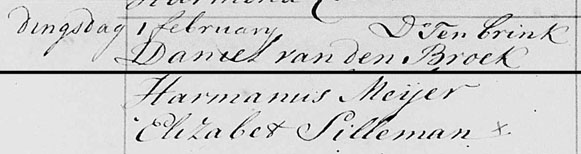 dingsdag 1 february Ds Ten brink
Daniel van den Broek
Harmanus Meijer
Elizabet Silleman x.